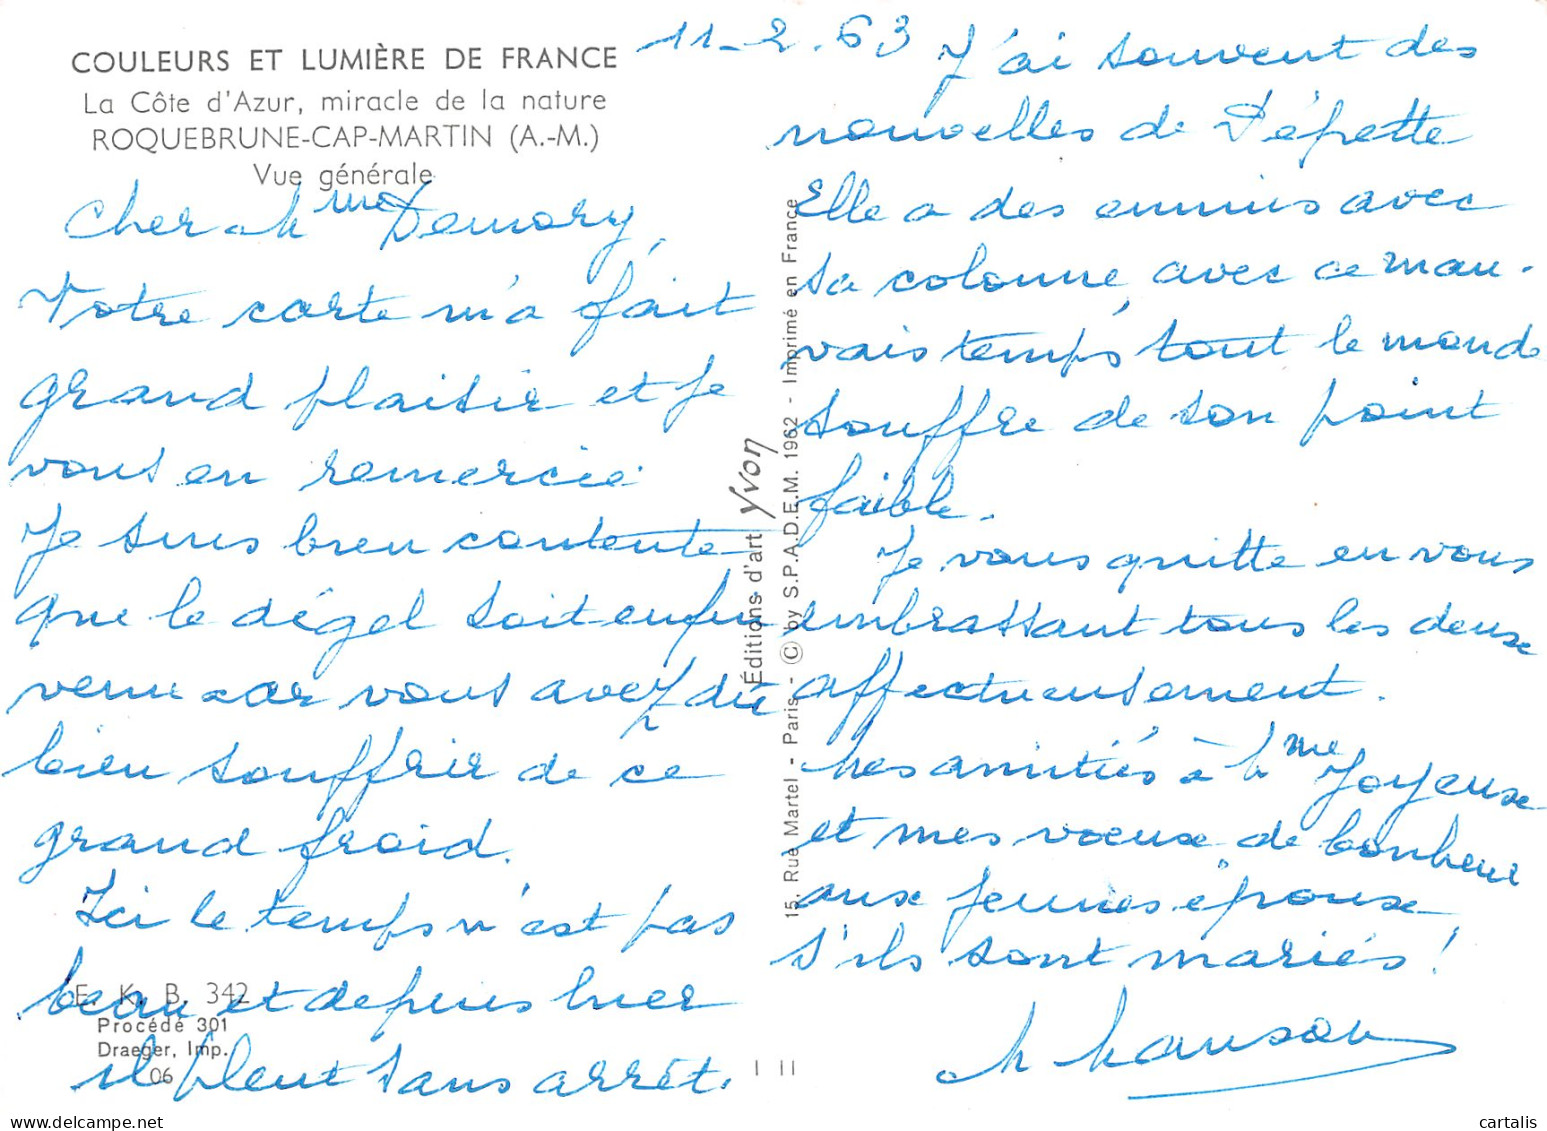 COULEURS ET LUMIÈRE DE FRANCE
La Côte d'Azur, miracle de la nature
ROQUEBRUNE-CAP-MARTIN (A.-M.)
Vue générale
Cher Mme Demory,
Votre carte m'a fait
grand plaisir et je
vous en remercie
Je suis bien contente
que le dégel soit enfin
venu car vous avez dû
bien souffrir de ce
grand froid.
Ici le temps n'est pas
beau et depuis hier
il pleut sans arrêt.
E. K. B. 342
Procédé 301
Draeger, Imp.
06
Éditions d'art Yvon
15, Rue Martel - Paris - © by S.P.A.D.E.M. 1962 - Imprimé en France
11-2.63
J'ai souvent des
nouvelles de
Elle a des ennuis avec
sa colonne avec ce mau-
vais temps tout le monde
souffre de son point
faible.
Je vous quitte en vous
embrassant tous les deux
affectueusement.
Mes amitiés à Mme Joyeuse
et mes voeux de bonheur
aux jeunes épouse
s'ils sont mariés !